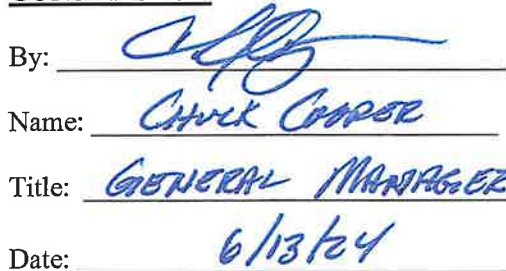 By:
Name: CHUCK COOPER
Title: GENERAL MANAGER
Date: 6/13/24